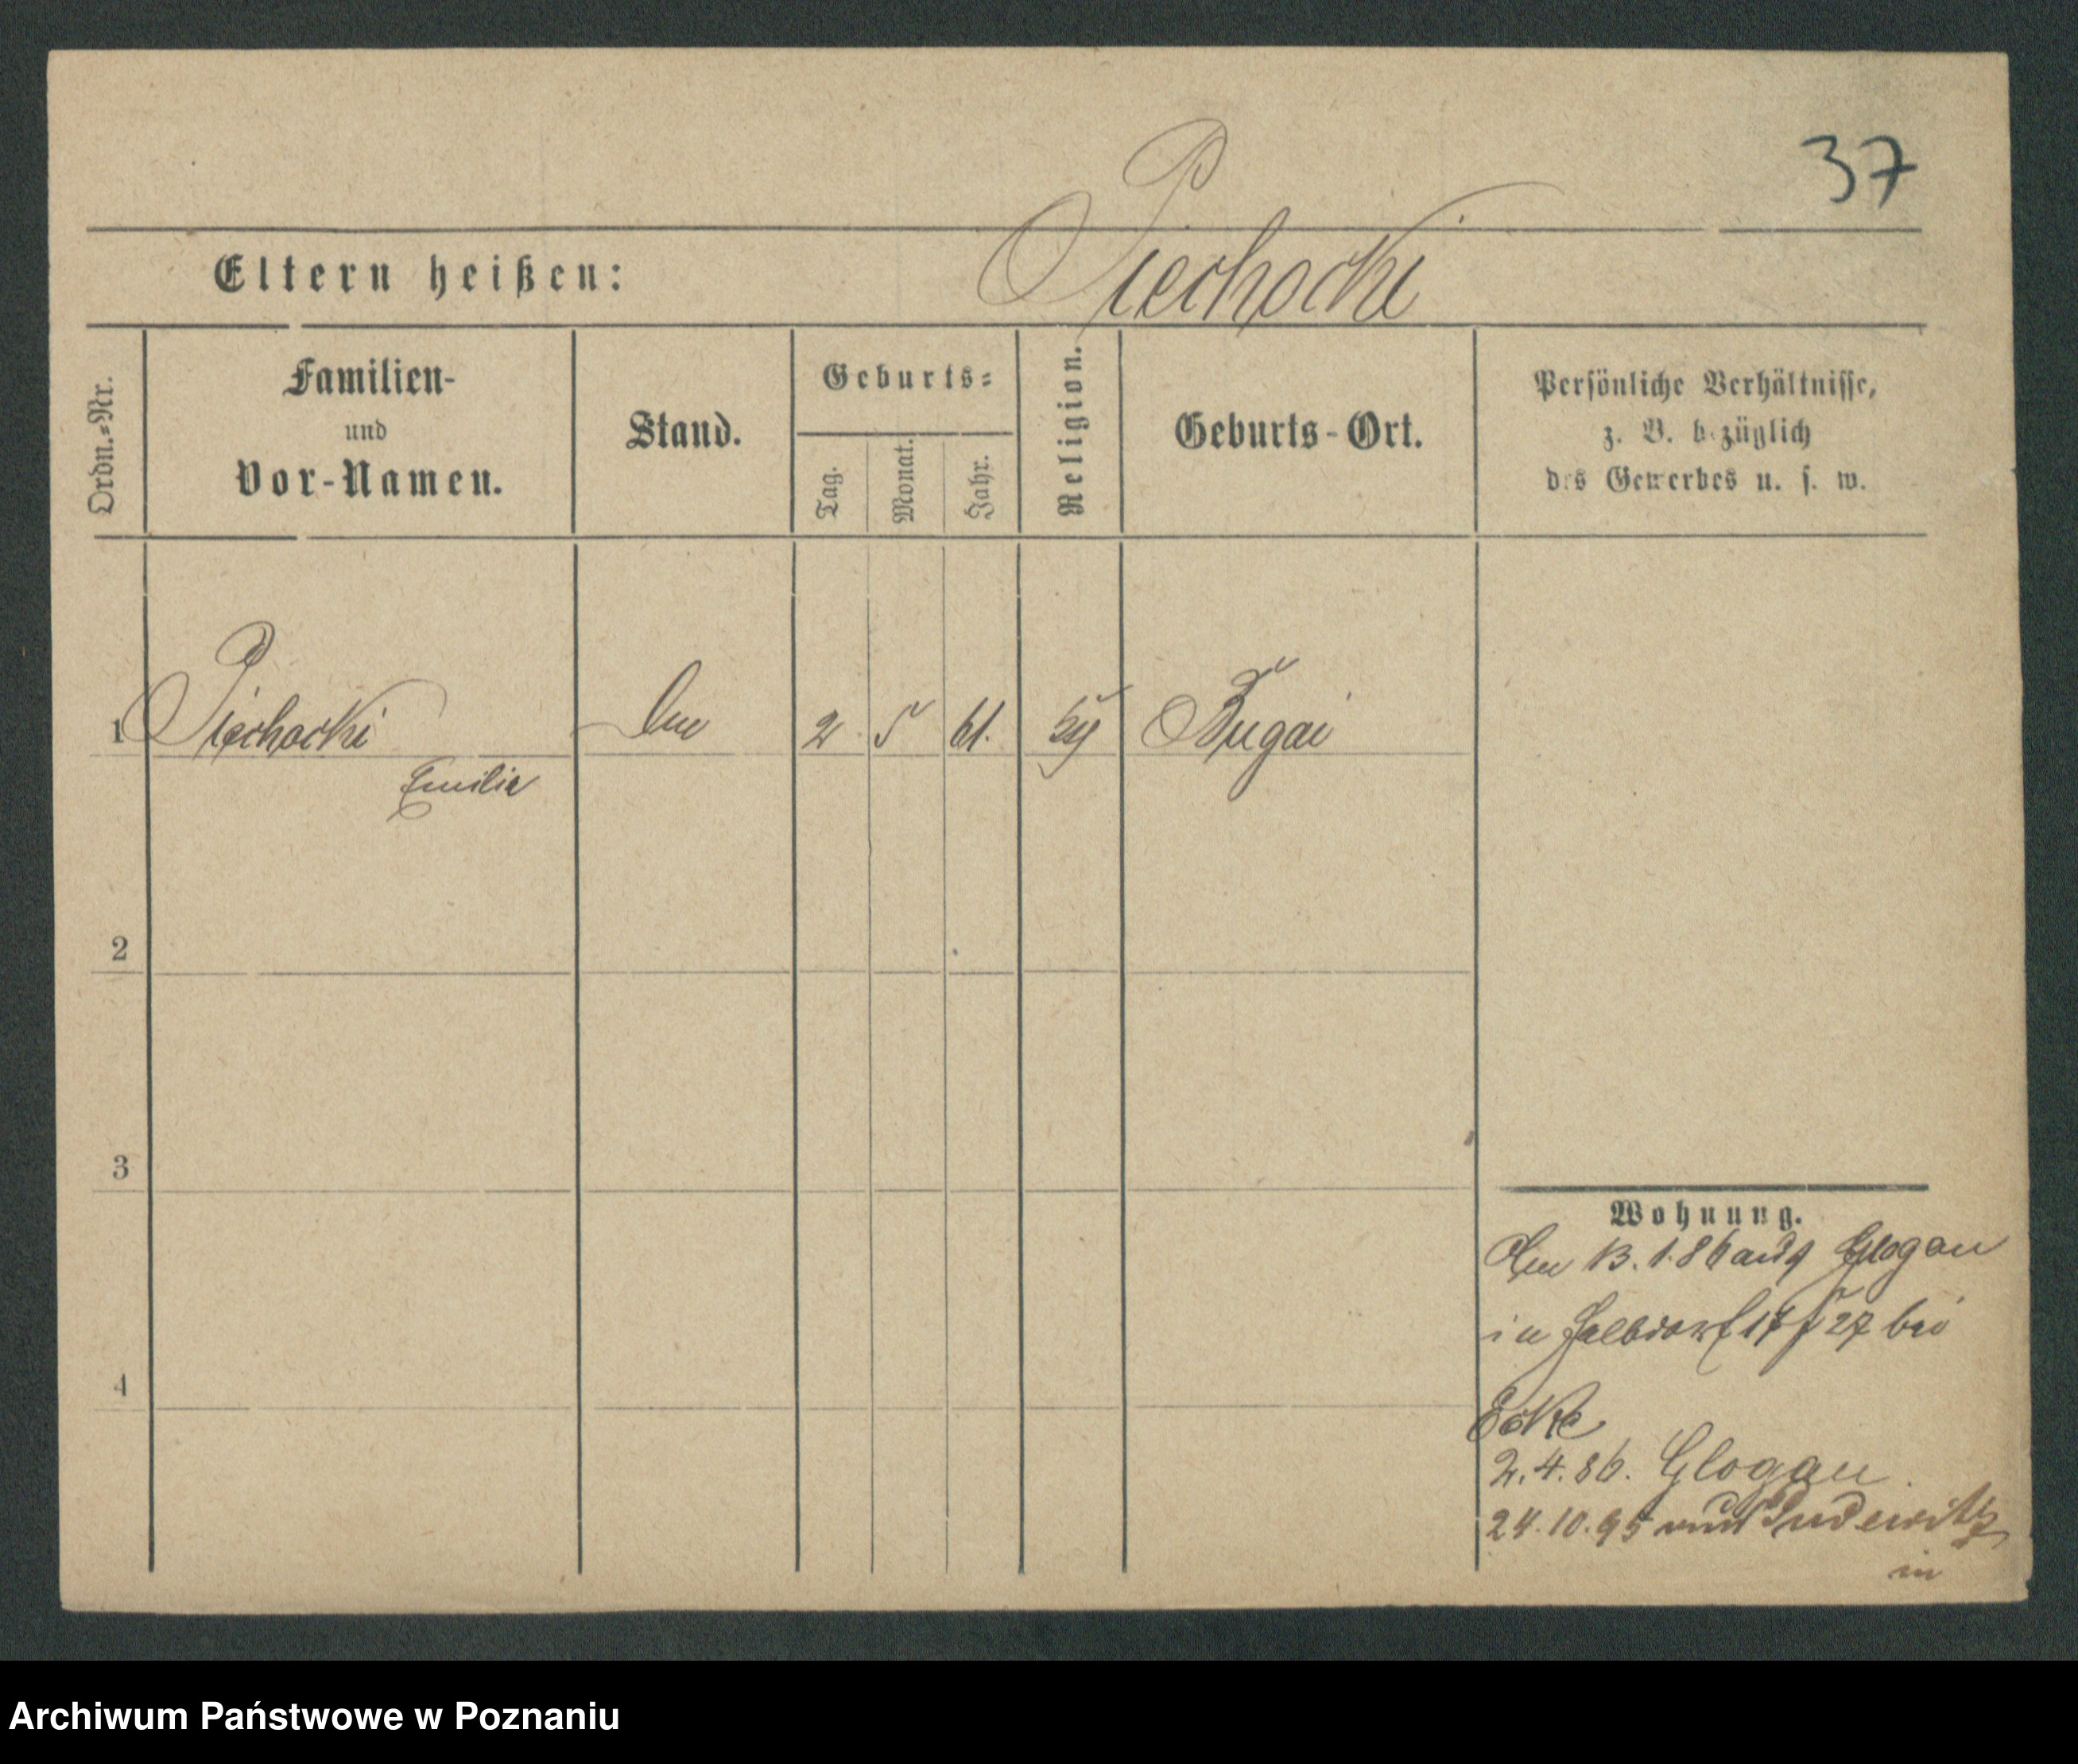 37
Piechocki
Eltern heißen:
Ordn.=Nr.
Familien-
und
Vor-Namen.
Stand.
Geburts=
Tag.
Monat.
Jahr.
Religion.
Geburts-Ort.
Persönliche Verhältnisse,
z. B. bezüglich
des Gewerbes u. s. w.
1 Piechocki 2 5 61. Bugai
Emilie
2
3
4
Wohnung.
13. 1. 86 aus Glogau
in 17/27 bei
2. 4. 86. Glogau
24. 10. 95 Pudewitz
in
Archiwum Państwowe w Poznaniu